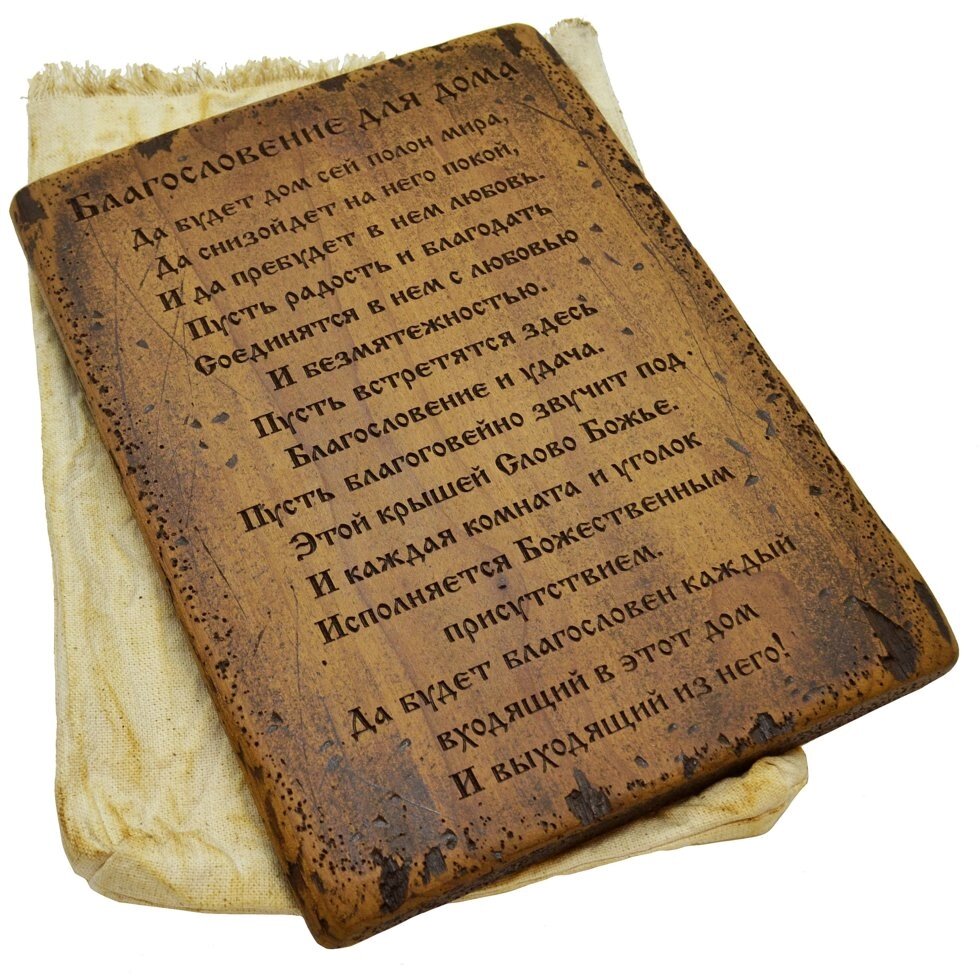 Благословение для дома
Да будет дом сей полон мира,
Да снизойдет на него покой,
И да пребудет в нем любовь.
Пусть радость и благодать
Соединятся в нем с любовью
И безмятежностью.
Пусть встретятся здесь
Благословение и удача.
Пусть благоговейно звучит под
Этой крышей Слово Божье.
И каждая комната и уголок
Исполняется Божественным
присутствием.
Да будет благословен каждый
входящий в этот дом
И выходящий из него!